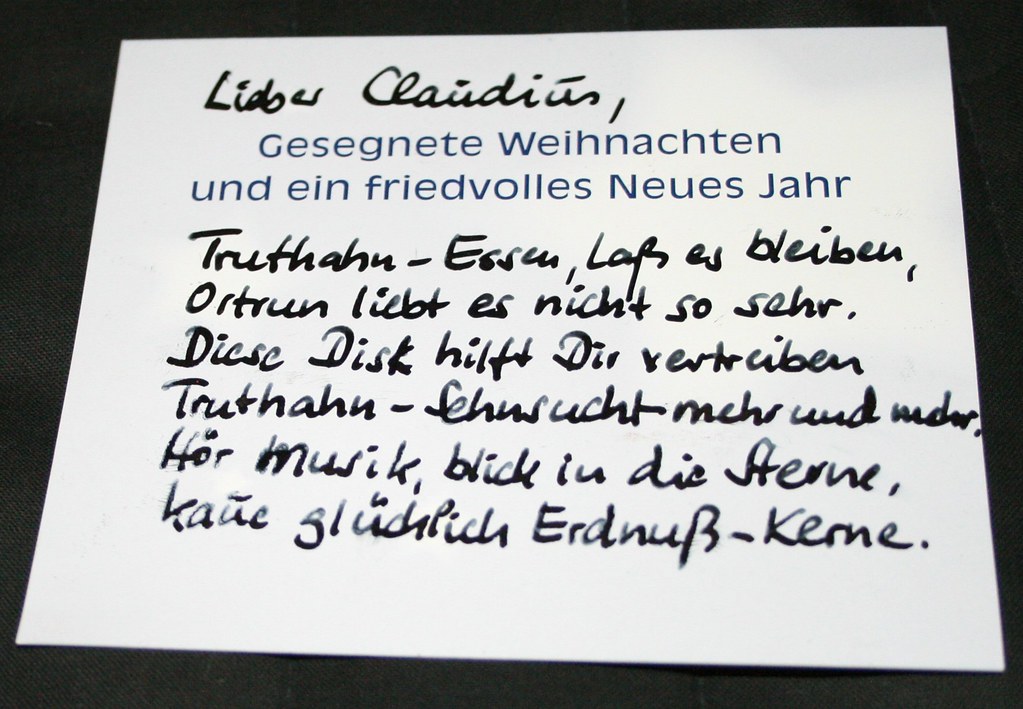 Lieber Claudius,
Gesegnete Weihnachten
und ein friedvolles Neues Jahr
Truthahn-Essen, laß es bleiben,
Ortrun liebt es nicht so sehr.
Diese Disk hilft Dir vertreiben
Truthahn-Sehnsucht mehr und mehr.
Hör Musik, blick in die Sterne,
kaue glücklich Erdnuß-Kerne.